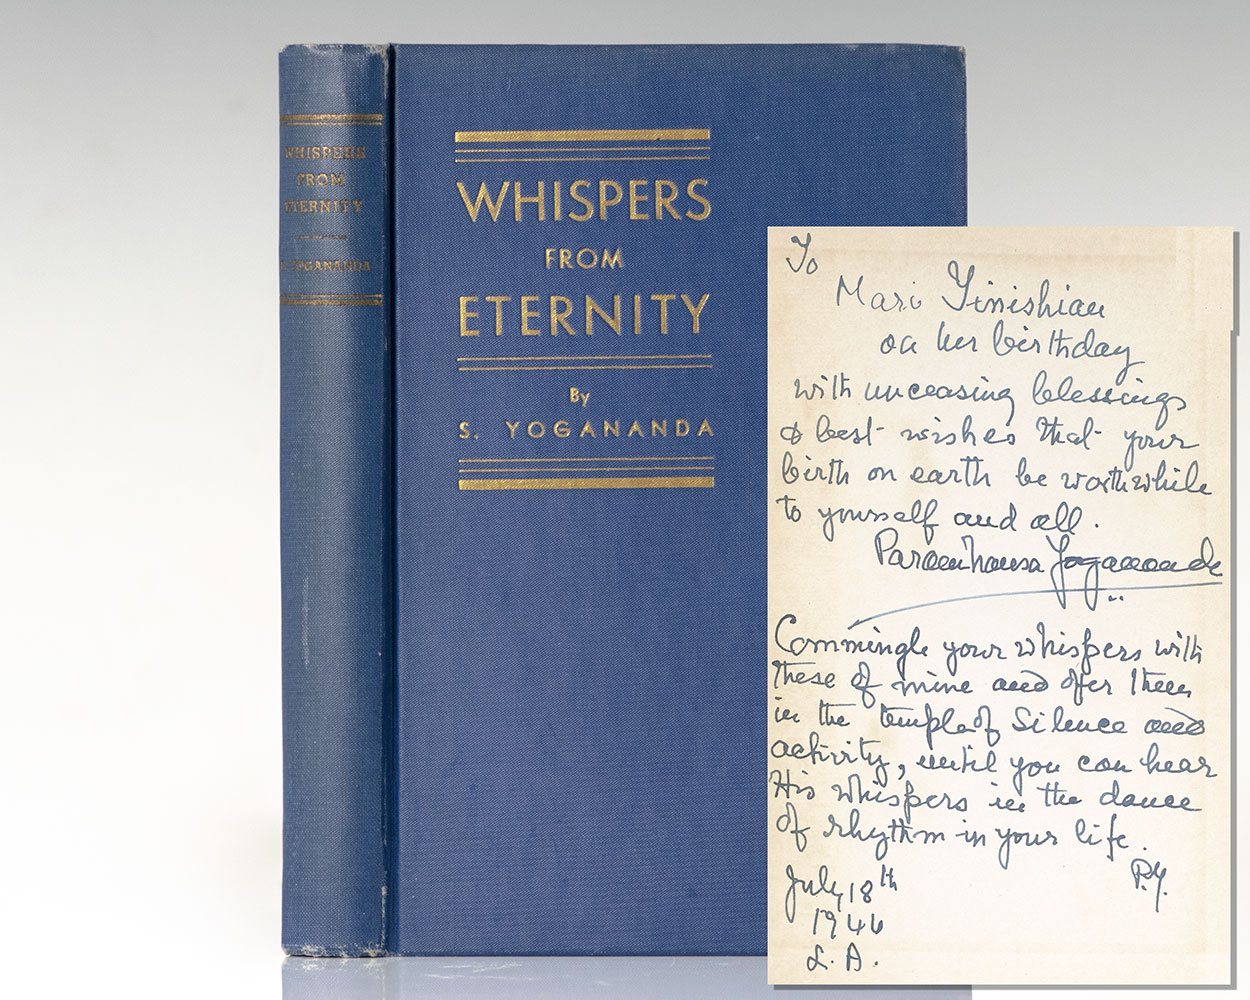 WHISPERS
FROM
ETERNITY
S. YOGANANDA
WHISPERS
FROM
ETERNITY
By
S. YOGANANDA
To
Mari Yinishian
on her birthday
with unceasing blessings
& best wishes that your
birth on earth be worthwhile
to yourself and all.
Paramhansa Yogananda
Commingle your whispers with
these of mine and offer them
in the temple of Silence and
activity, until you can hear
His whispers in the dance
of rhythm in your life.
P.Y.
July 18th
1946
L. A.